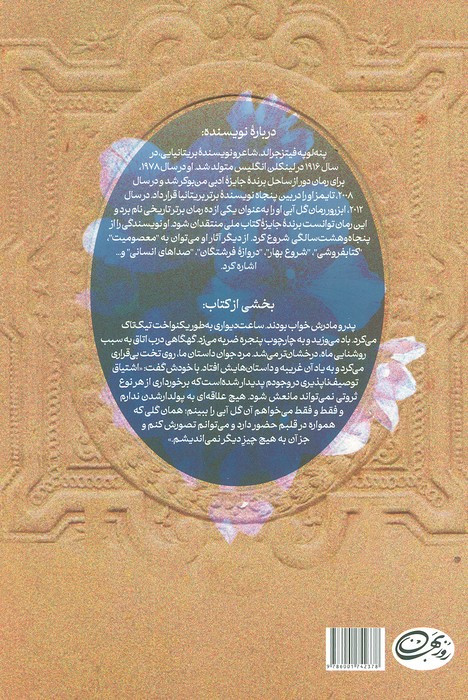 دربارهٔ نویسنده:
پنه‌لوپه فیتزجرالد، شاعر و نویسندهٔ بریتانیایی، در
سال ۱۹۱۶ در لینکلن انگلیس متولد شد. او در سال ۱۹۷۸،
برای رمان دور از ساحل برندهٔ جایزهٔ ادبی من‌بوکر شد و در سال
۲۰۰۸، تایمز او را در بین پنجاه نویسندهٔ برتر بریتانیا قرار داد. در سال
۲۰۱۲، ابزرور رمان گل آبی او را به‌عنوان یکی از ده رمان برتر تاریخی نام برد و
این رمان توانست برندهٔ جایزهٔ کتاب ملی منتقدان شود. او نویسندگی را از
پنجاه‌وهشت‌سالگی شروع کرد. از دیگر آثار او می‌توان به "معصومیت"،
"کتابفروشی"، "شروع بهار"، "دروازهٔ فرشتگان"، "صداهای انسانی" و...
اشاره کرد.
بخشی از کتاب:
پدر و مادرش خواب بودند. ساعت‌دیواری به‌طور یکنواخت تیک‌تاک
می‌کرد. باد می‌وزید و به چارچوب پنجره ضربه می‌زد. گهگاهی درب اتاق به سبب
روشنایی ماه، درخشان‌تر می‌شد. مرد جوان داستان ما، روی تخت بی‌قراری
می‌کرد و به یاد آن غریبه و داستان‌هایش افتاد. با خودش گفت: «اشتیاق
توصیف‌ناپذیری در وجودم پدیدار شده‌است که برخورداری از هر نوع
ثروتی نمی‌تواند مانعش شود. هیچ علاقه‌ای به پولدارشدن ندارم
و فقط و فقط می‌خواهم آن گل آبی را ببینم؛ همان گلی که
همواره در قلبم حضور دارد و می‌توانم تصورش کنم و
جز آن به هیچ چیز دیگر نمی‌اندیشم.»
روزبهان
9786001742378